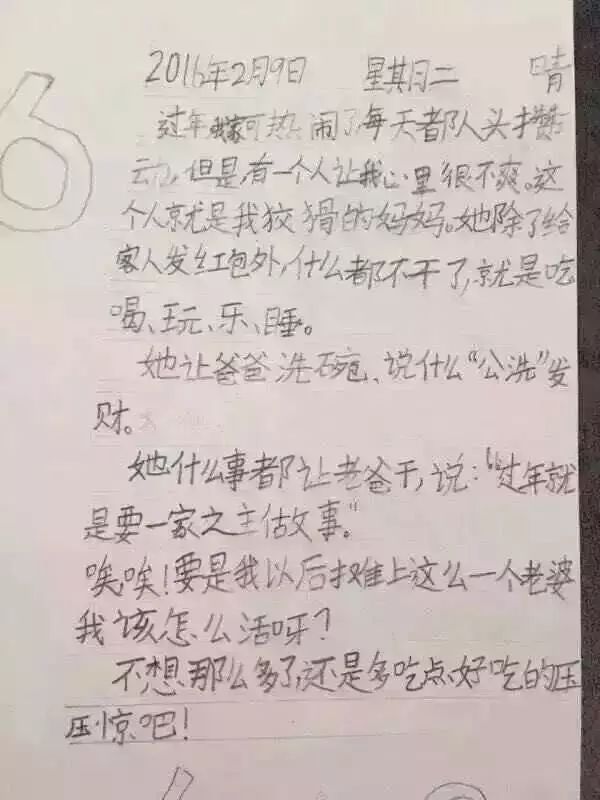 2016年2月9日 星期二 晴
过年可热闹了,每天都人头攒
动,但是,有一个人让我心里很不爽。这
个人就是我狡猾的妈妈。她除了给
客人发红包外,什么都不干了,就是吃
喝、玩、乐、睡。
她让爸爸洗碗、说什么“公洗”发
财。
她什么事都让老爸干,说:“过年就
是要一家之主做事。”
唉唉!要是我以后摊上这么一个老婆
我该怎么活呀?
不想那么多了,还是多吃点好吃的压
压惊吧!
6